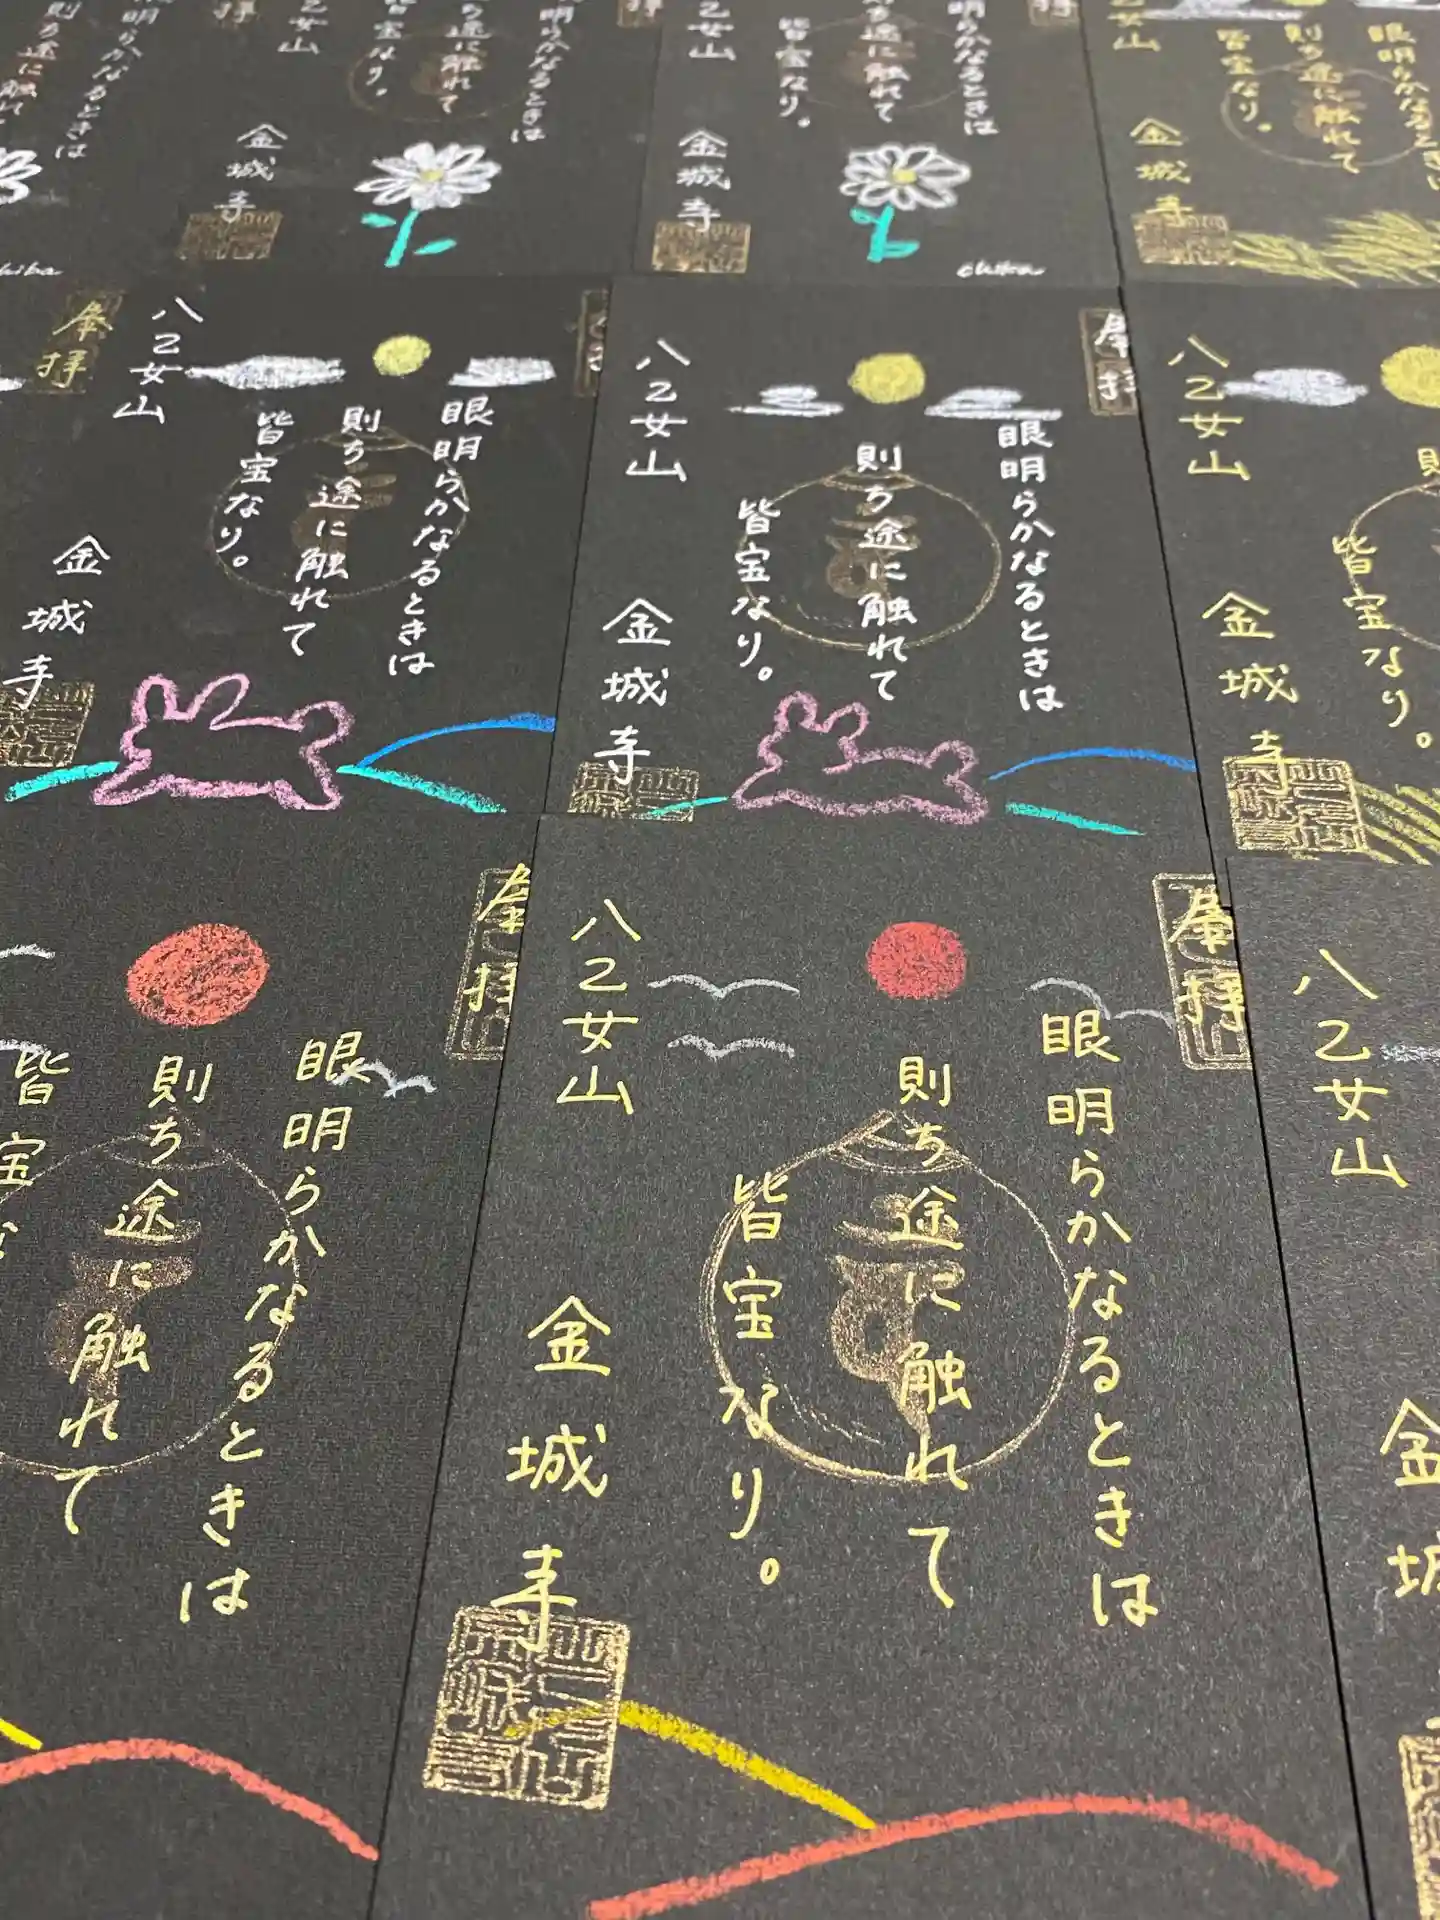 眼明らかなるときは
則ち途に触れて
皆宝なり。
八乙女山
金城寺
眼明らかなるときは
則ち途に触れて
皆宝なり。
八乙女山
金城寺
chiba
眼明らかなるときは
則ち途に触れて
皆宝なり。
八乙女山
金城寺
奉拝
眼明らかなるときは
則ち途に触れて
皆宝なり。
八乙女山
金城寺
奉拝
眼明らかなるときは
則ち途に触れて
皆宝なり。
八乙女山
金城寺
皆宝なり。
八乙女山
金城寺
奉拝
眼明らかなるときは
則ち途に触れて
皆宝
奉拝
眼明らかなるときは
則ち途に触れて
皆宝なり。
八乙女山
金城寺
八乙女山
金城